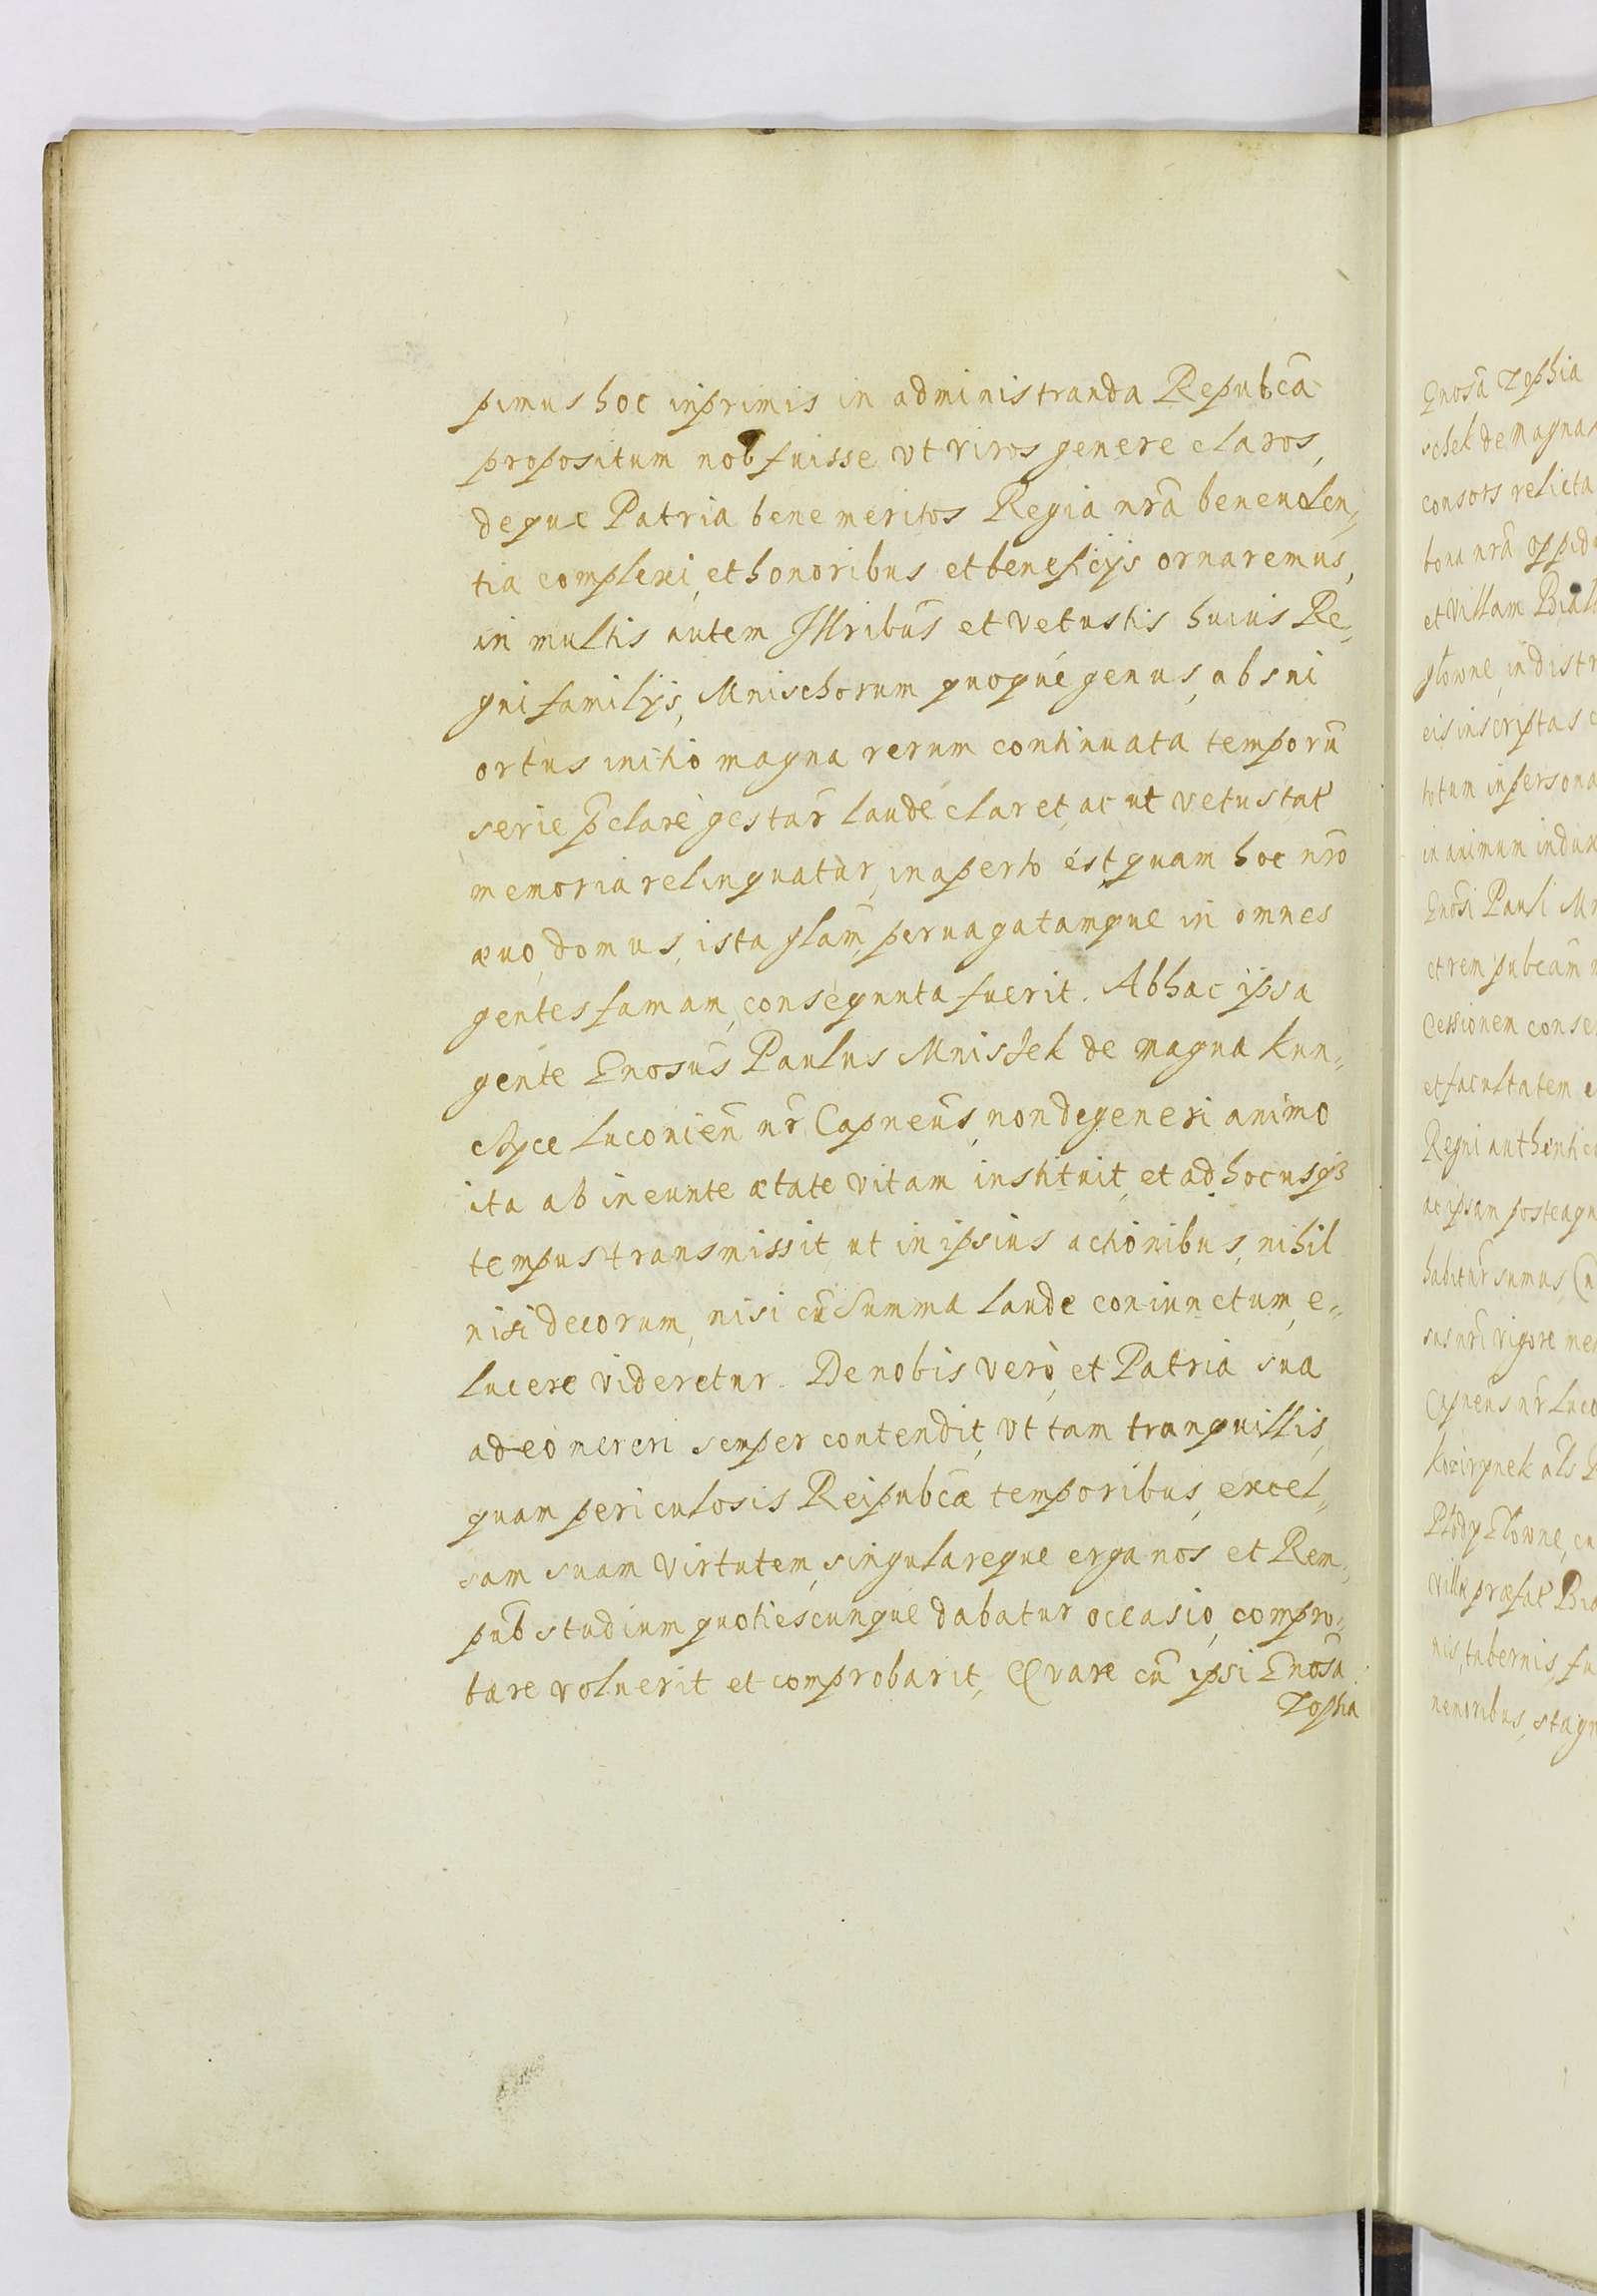 pimus hoc inprimis in administranda Repubcã
propositum nob fuisse vt viros genere claros,
deque Patria bene meritos Regia nrã beneuolen„
tia complexi, et honoribus et beneficijs ornaremus,
in multis autem Illribus̃ et vetustis huius Re„
gni familijs, Mnischorum quoque genus, ab sui
ortus initio magna rerum continuata temporũ
serie p̃clarè gestar̃ laude claret, ac ut vetustat̃
memoria relinquatur, in aperto est, quam hoc nrõ
æuo, domus, ista glam̃, peruagatamque in omnes
gentes famam, consequuta fuerit. Ab hac ipsa
gente Gnosus̃ Paulus Mnisek de magna Kun„
czyce Luconieñ nr̃ Capneus̃, non degeneri animo
ita ab ineunte ætate vitam instituit, et ad hoc usqꝫ
tempus transmissit, ut in ipsius actionibus, nihil
nisi decorum, nisi cũ Summa laude coniunctum, e„
lucere videretur. De nobis verò, et Patria sua
adeo mereri semper contendit, vt tam tranquillis,
quam periculosis Reipubcæ̃ temporibus, excel„
sam suam virtutem, singulareque erga nos et Rem„
pub̃ studium quotiescunque dabatur occasio, compro„
bare voluerit et comprobarit, Qvare cũ ipsi Gnosã
Zophia
Gnosã Zophia
schek de Magna
consors relicta
bona nrã oppid
et villam Bial
glowne, in distr
eis inscriptas
totum in persona
in animum indux
Gnosi̅ Pauli Mn
et rem pubcam̃
Cessionem conse
et facultatem
Regni authentic
ac ipsam posteaqu
habitur̃ sumus
sus nri̅ vigore me
Capneus̃ nr̃ Luco
Kozirynek al̃s
villæ præfat̃ Bia
nis, tabernis, fu
nemoribus, stagn